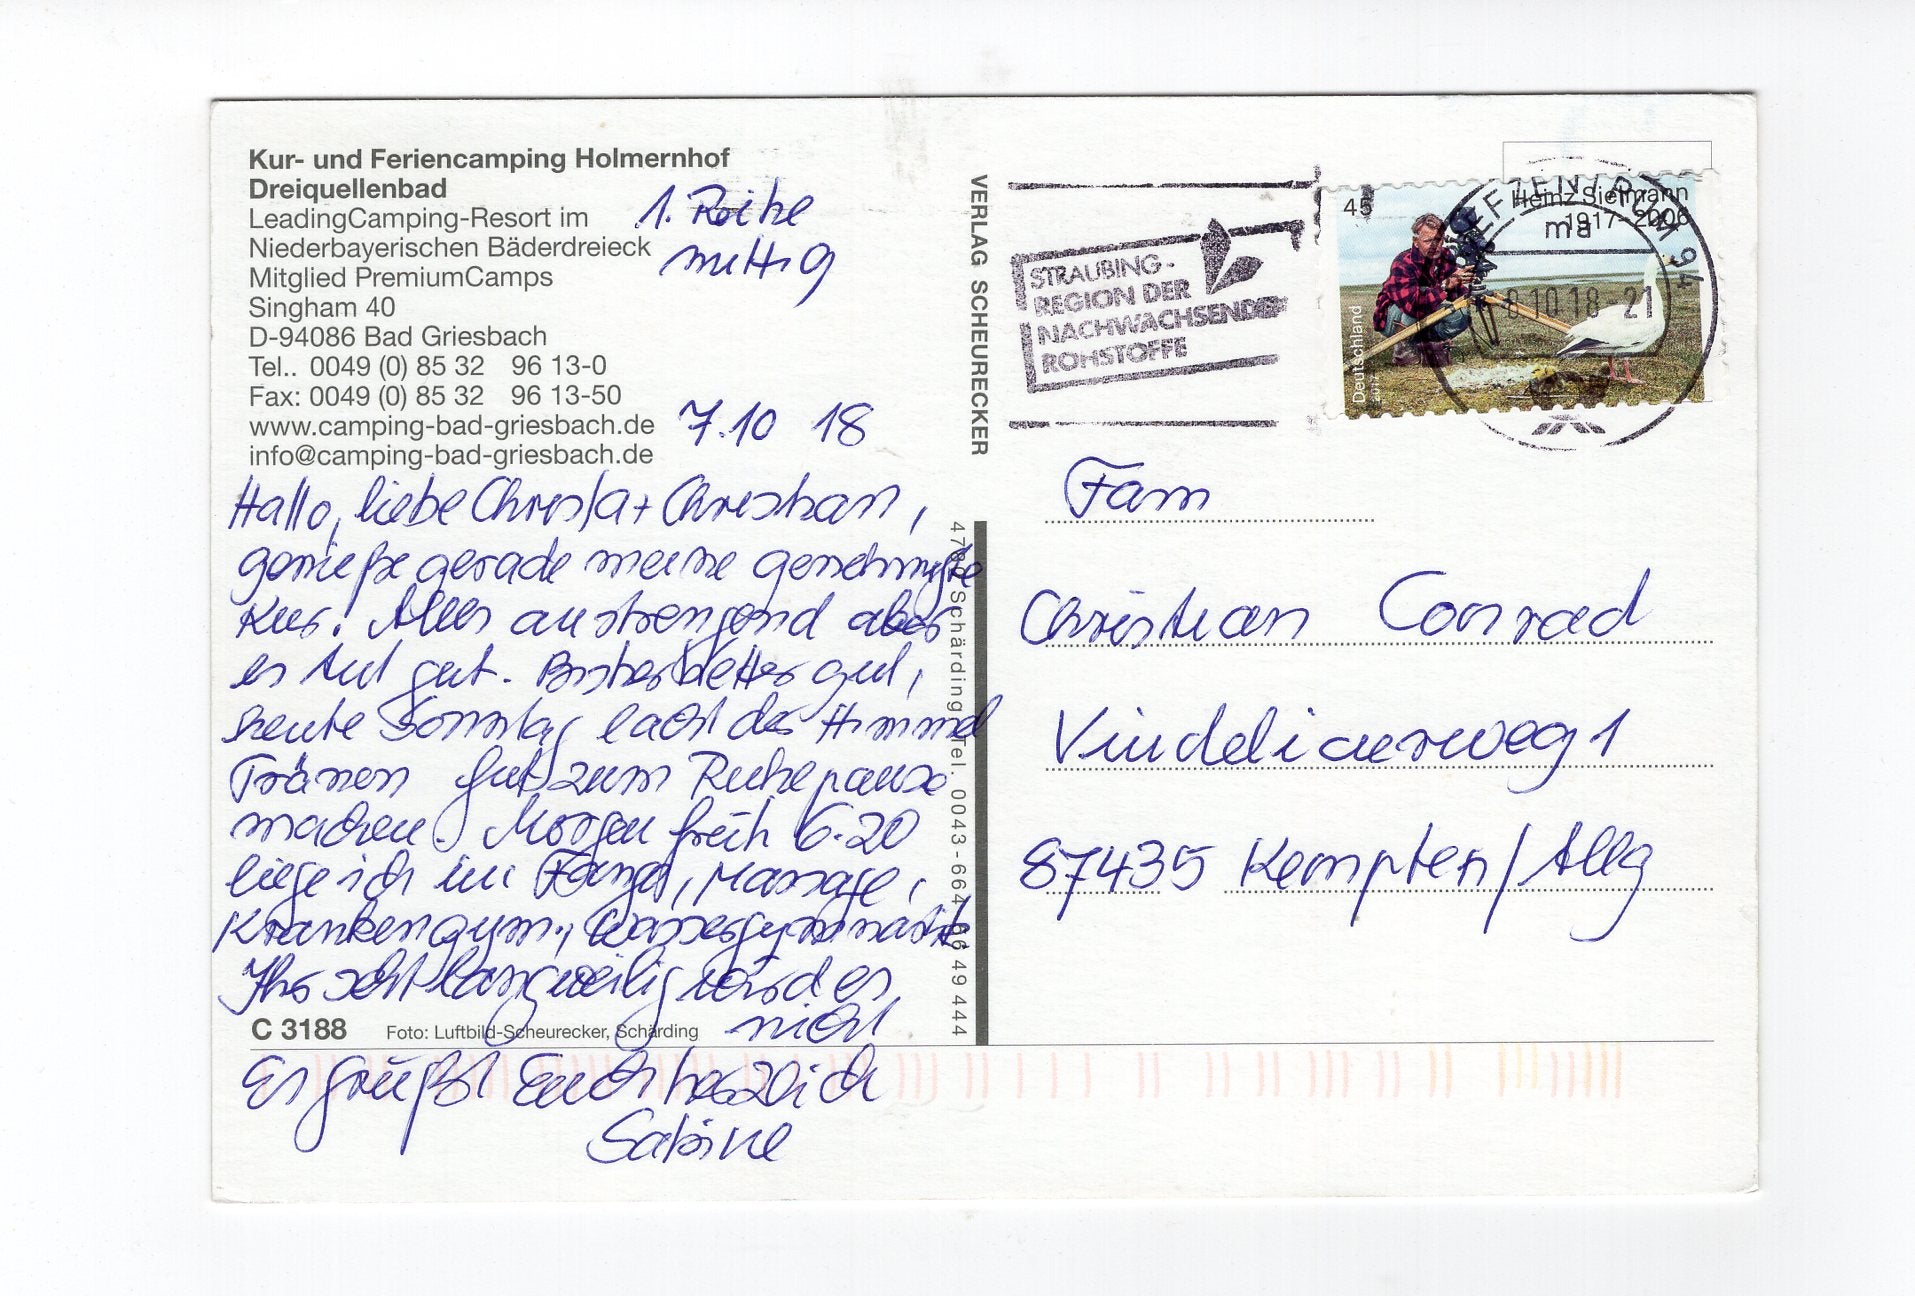 Kur- und Feriencamping Holmernhof
Dreiquellenbad
LeadingCamping-Resort im
Niederbayerischen Bäderdreieck
Mitglied PremiumCamps
Singham 40
D-94086 Bad Griesbach
Tel.. 0049 (0) 85 32 96 13-0
Fax: 0049 (0) 85 32 96 13-50
www.camping-bad-griesbach.de
info@camping-bad-griesbach.de
1. Reihe
mittig
7.10 18
Hallo, liebe Christa + Christian,
genieße gerade meine genehmigte
Kur! Alles anstrengend aber
es tut gut. Bisher Wetter gut,
heute Sonntag lacht der Himmel
Tränen gut zum Ruhepause
machen. Morgen früh 6.20
liege ich im Fango, Massage,
Krankengym., Wassergymnastik
Ihr seht langweilig wird es
nicht
Es grüßt Euch herzlich
Sabine
C 3188 Foto: Luftbild-Scheurecker, Schärding
VERLAG SCHEURECKER
Schärding Tel. 0043-664 49 444
STRAUBING-
REGION DER
NACHWACHSENDE
ROHSTOFFE
45
Heinz Sielmann
1917-2006
Deutschland
BRIEFZENTRUM 94
ma
8.10.18-21
Fam
Christian Conrad
Vindelicerweg 1
87435 Kempten/Allg